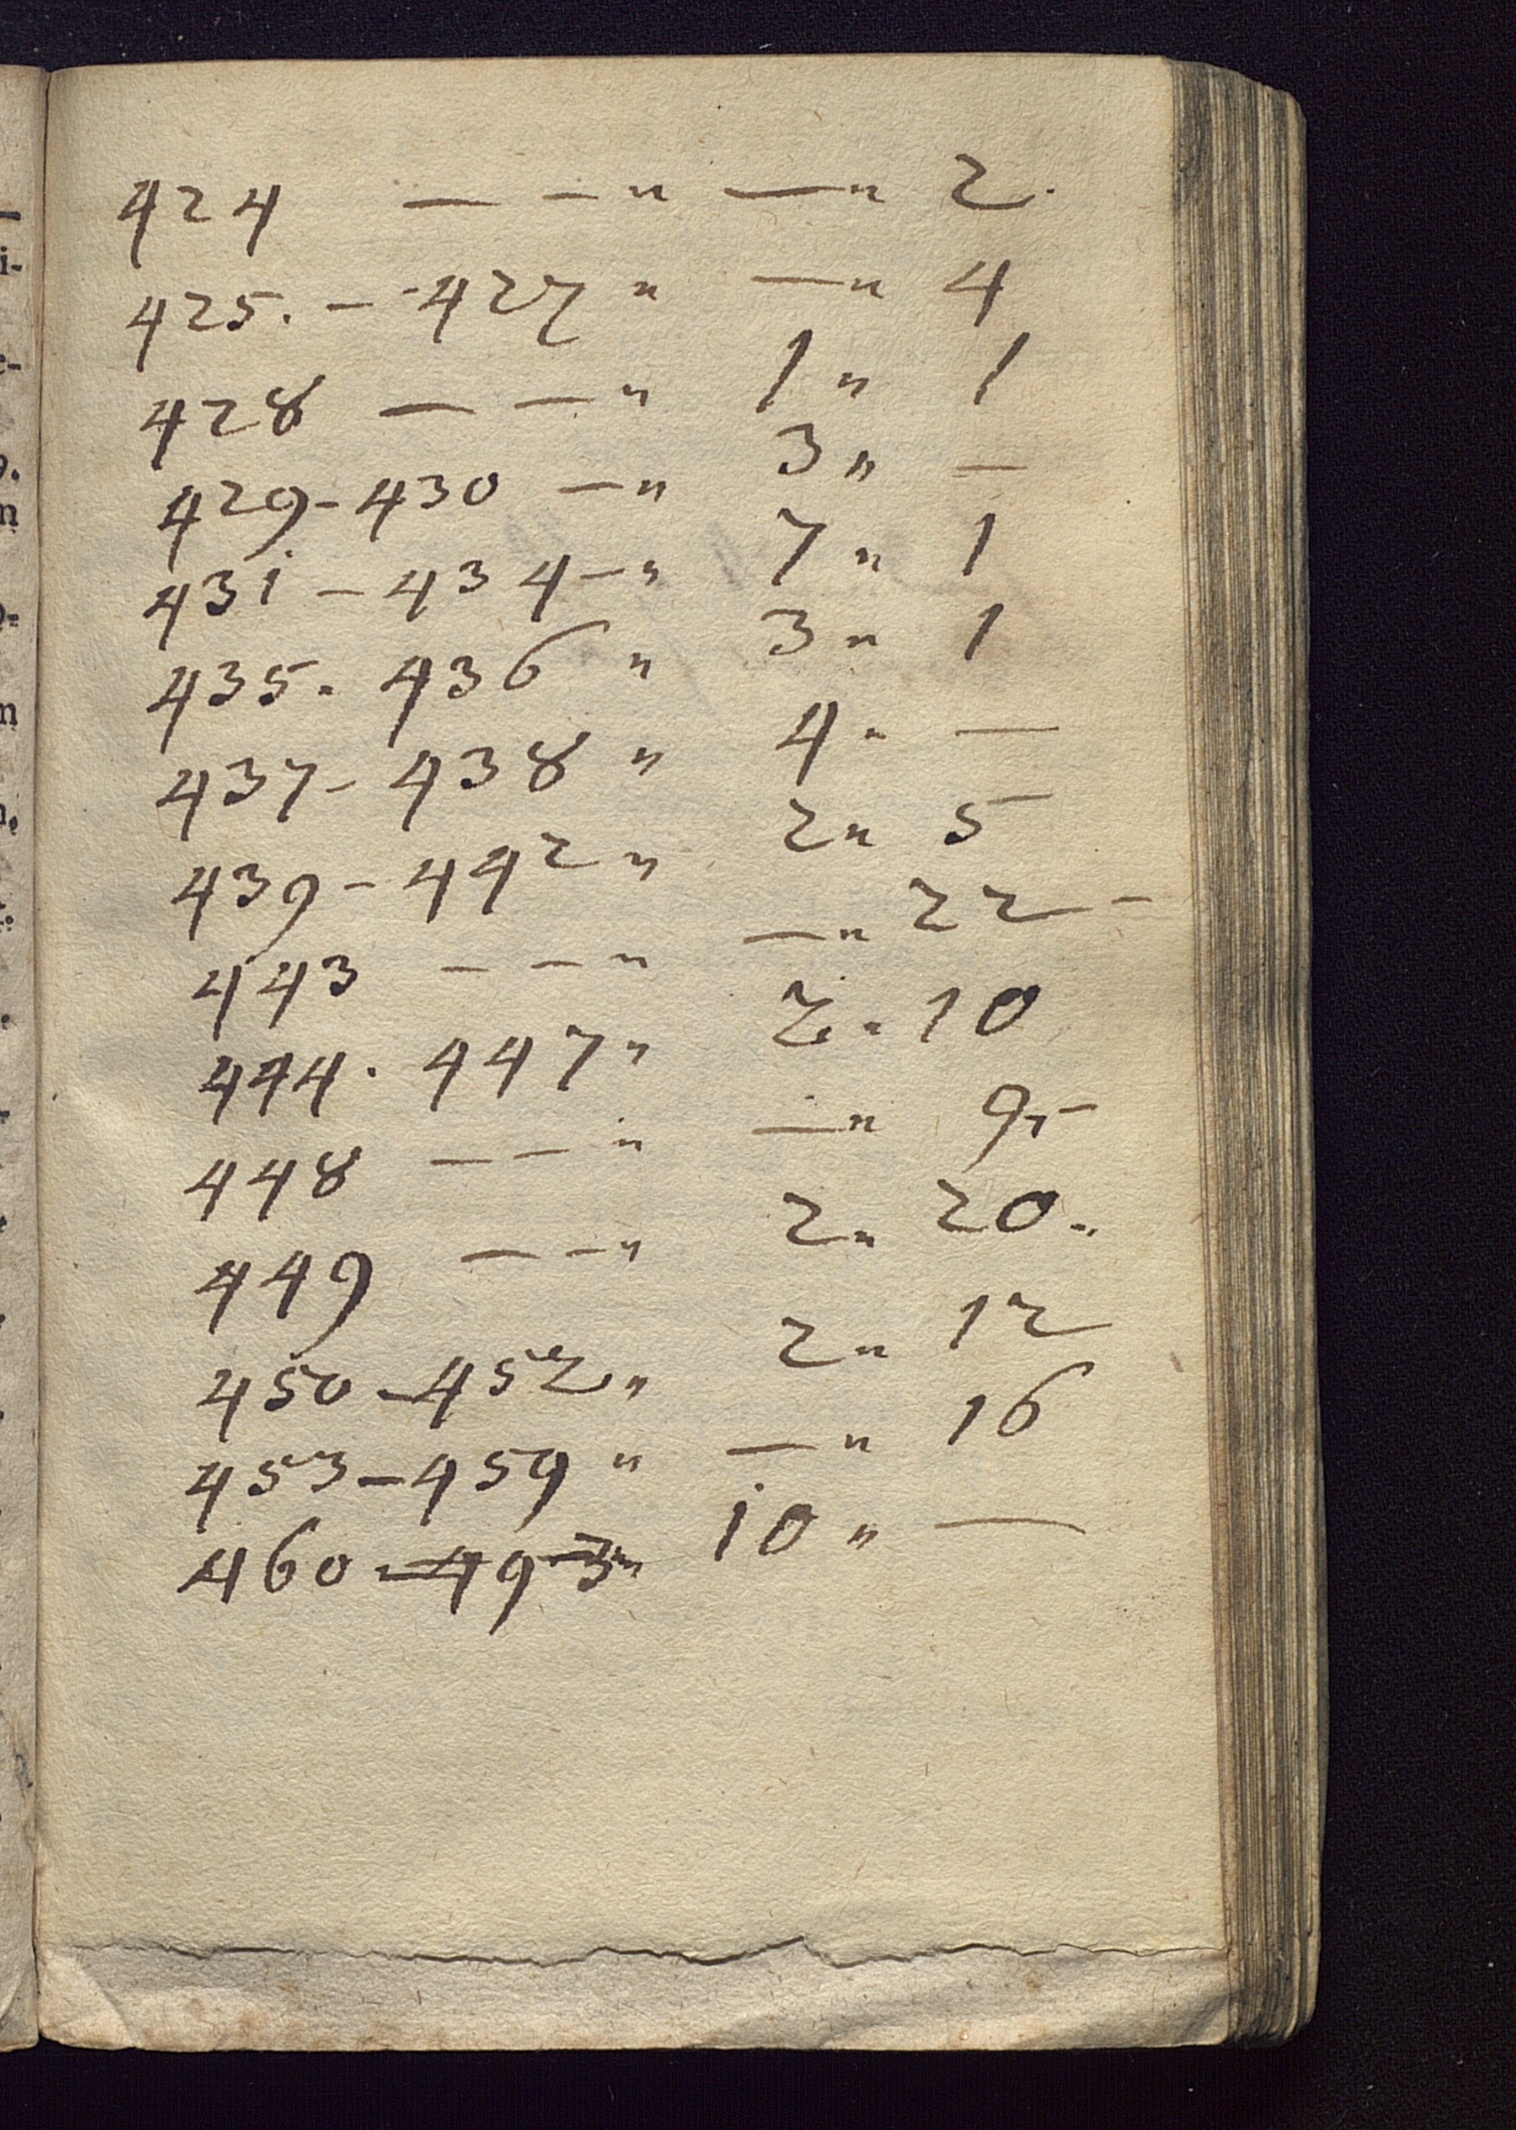 424 — — " — " 2.
425. — - 427 " — " 4
428 — — " 1 " 1
429 - 430 — " 3 " —
431 — 434 — " 7 " 1
435. 436 " 3 " 1
437 - 438 " 4 " —
439 - 442 " 2 " 5
443 — — " — " 22 -
444. 447 " 2 " 10
448 — — " — " 9 " -
449 — — " 2 " 20 "
450 - 452 " 2 " 12
453 - 459 " — " 16
460 - 493 " 10 " —